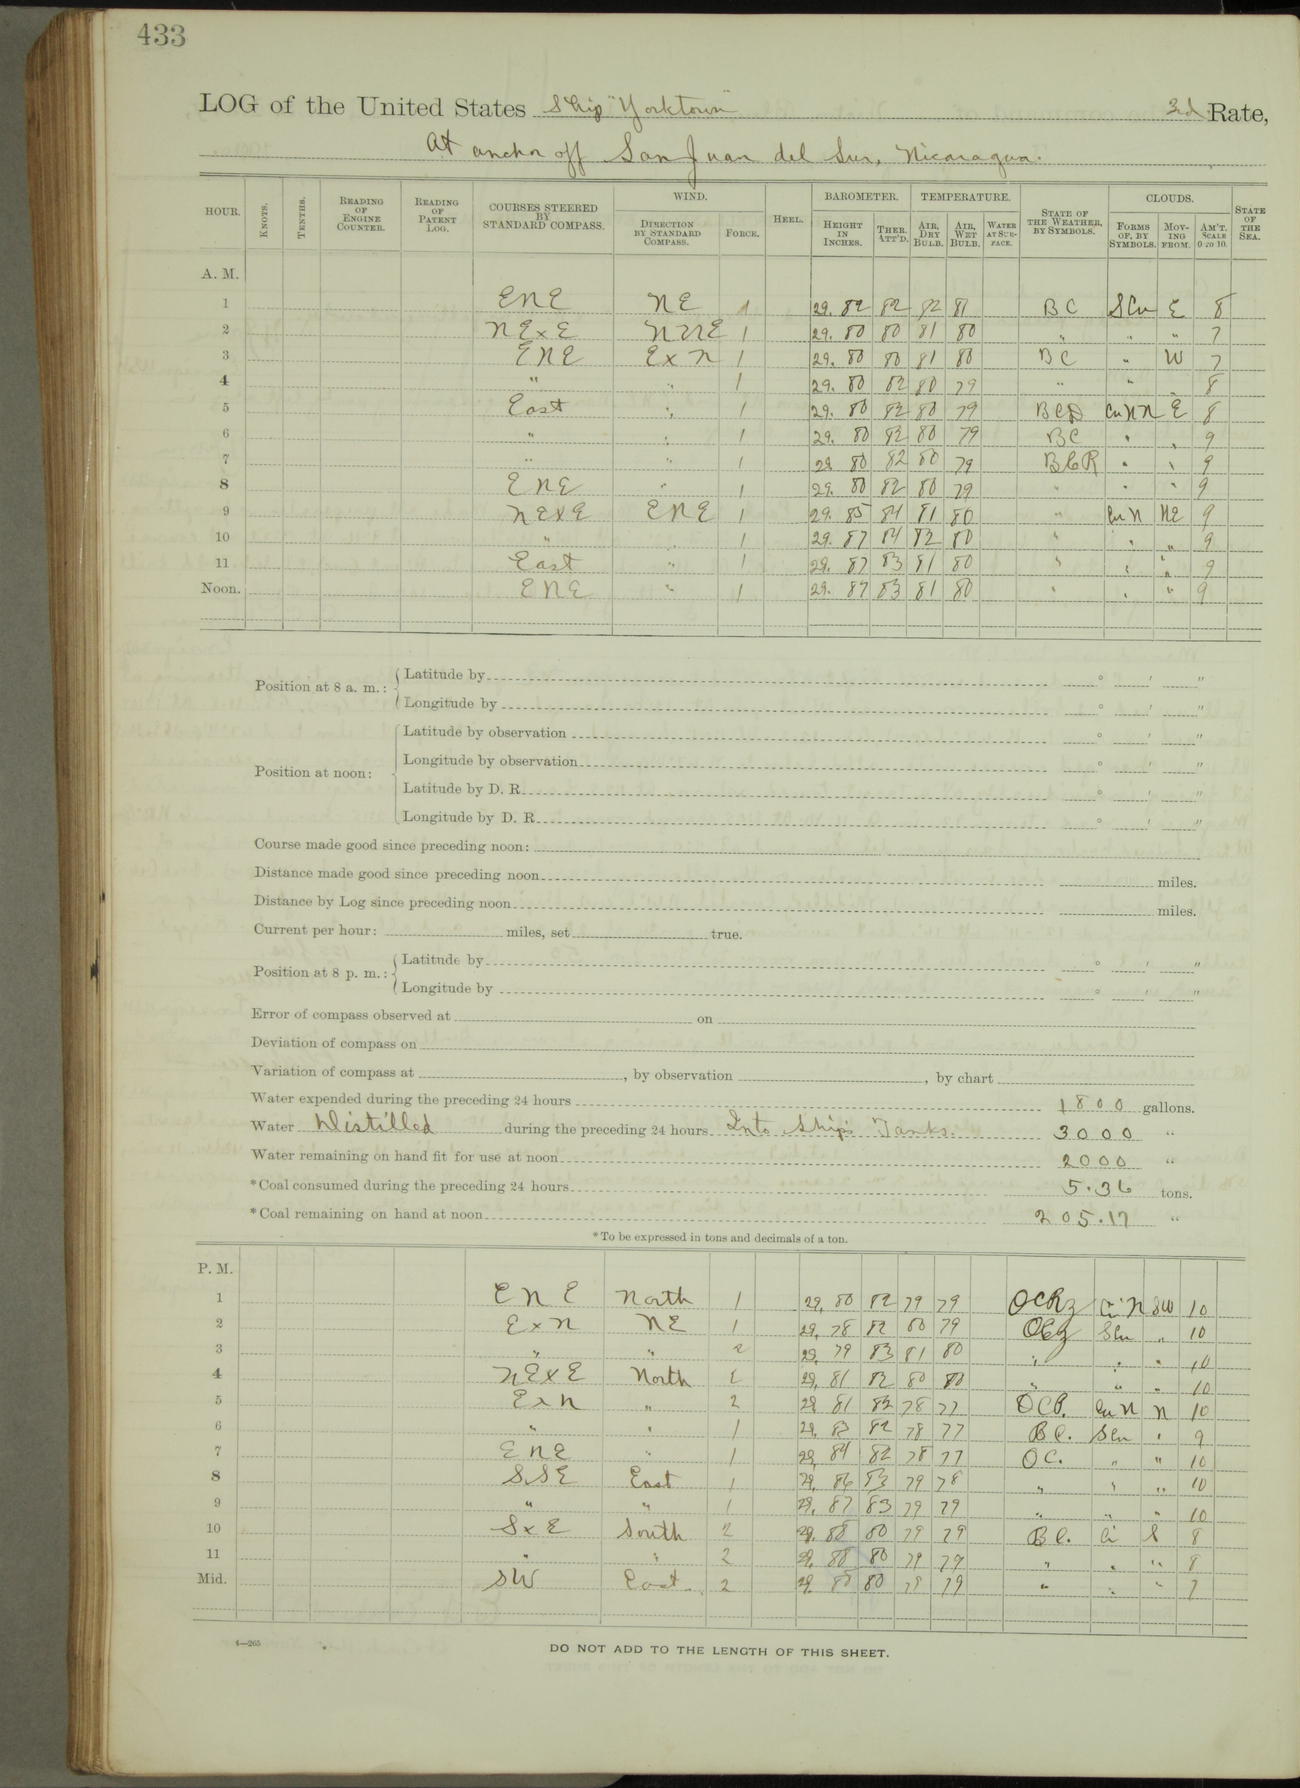 433
LOG of the United States Ship "Yorktown" 3rd Rate,
At anchor off San Juan del Sur, Nicaragua.
HOUR. KNOTS. TENTHS. READING OF ENGINE COUNTER. READING OF PATENT LOG. COURSES STEERED BY STANDARD COMPASS. WIND. DIRECTION BY STANDARD COMPASS. FORCE. HEEL. BAROMETER. HEIGHT IN INCHES. THER. ATT'D. TEMPERATURE. AIR, DRY BULB. AIR, WET BULB. WATER AT SURFACE. STATE OF THE WEATHER, BY SYMBOLS. CLOUDS. FORMS OF, BY SYMBOLS. MOVING FROM. AM'T. SCALE 0 TO 10. STATE OF THE SEA.
A. M.
1 ENE NE 1 29. 82 82 82 81 BC SCu E 8
2 NExE NNE 1 29. 80 80 81 80 " " " 7
3 ENE ExN 1 29. 80 80 81 80 BC " W 7
4 " " 1 29. 80 82 80 79 " " 8
5 East " 1 29. 80 82 80 79 BCD CuNN E 8
6 " " 1 29. 80 82 80 79 BC " " 9
7 " " 1 29 80 82 80 79 BCR " " 9
8 ENE " 1 29. 80 82 80 79 " " " 9
9 NExE ENE 1 29. 85 84 81 80 " CuN NE 9
10 " " 1 29. 87 84 82 80 " " " 9
11 East " 1 29. 87 83 81 80 " " " 9
Noon. ENE " 1 29. 87 83 81 80 " " " 9
Position at 8 a. m.: Latitude by ° ' "
Longitude by ° ' "
Position at noon: Latitude by observation ° ' "
Longitude by observation ° ' "
Latitude by D. R. ° ' "
Longitude by D. R. ° ' "
Course made good since preceding noon:
Distance made good since preceding noon miles.
Distance by Log since preceding noon miles.
Current per hour: miles, set true.
Position at 8 p. m.: Latitude by ° ' "
Longitude by ° ' "
Error of compass observed at on
Deviation of compass on
Variation of compass at , by observation , by chart
Water expended during the preceding 24 hours 1800 gallons.
Water Distilled during the preceding 24 hours Into Ship's Tanks. 3000 "
Water remaining on hand fit for use at noon 2000 "
*Coal consumed during the preceding 24 hours 5.36 tons.
*Coal remaining on hand at noon 205.17 "
*To be expressed in tons and decimals of a ton.
P. M.
1 ENE North 1 29. 80 82 79 79 OCRZ CiN SW 10
2 ExN NE 1 29. 78 82 80 79 OCZ SCu " 10
3 " " 2 29. 79 83 81 80 " " " 10
4 NExE North 1 29. 81 82 80 80 " " " 10
5 ExN " 2 29 81 82 78 77 OCP. CuN N 10
6 " " 1 29. 83 82 78 77 BC. SCu " 9
7 ENE " 1 29. 84 82 78 77 OC. " " 10
8 SSE East 1 29. 86 83 79 78 " " " 10
9 " " 1 29. 87 83 79 79 " " " 10
10 SxE South 2 29. 88 80 79 79 BC. Ci S 8
11 " " 2 29. 88 80 79 79 " " " 8
Mid. SW East 2 29. 88 80 79 79 " " " 7
4—265
DO NOT ADD TO THE LENGTH OF THIS SHEET.